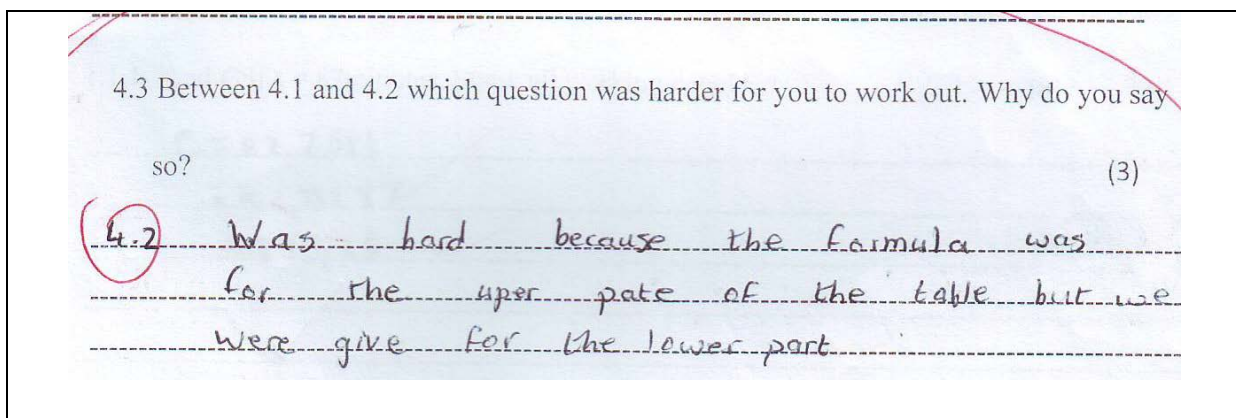 4.3 Between 4.1 and 4.2 which question was harder for you to work out. Why do you say
so? (3)
4.2 Was hard because the formula was
for the uper pate of the table but we
were give for the lower part